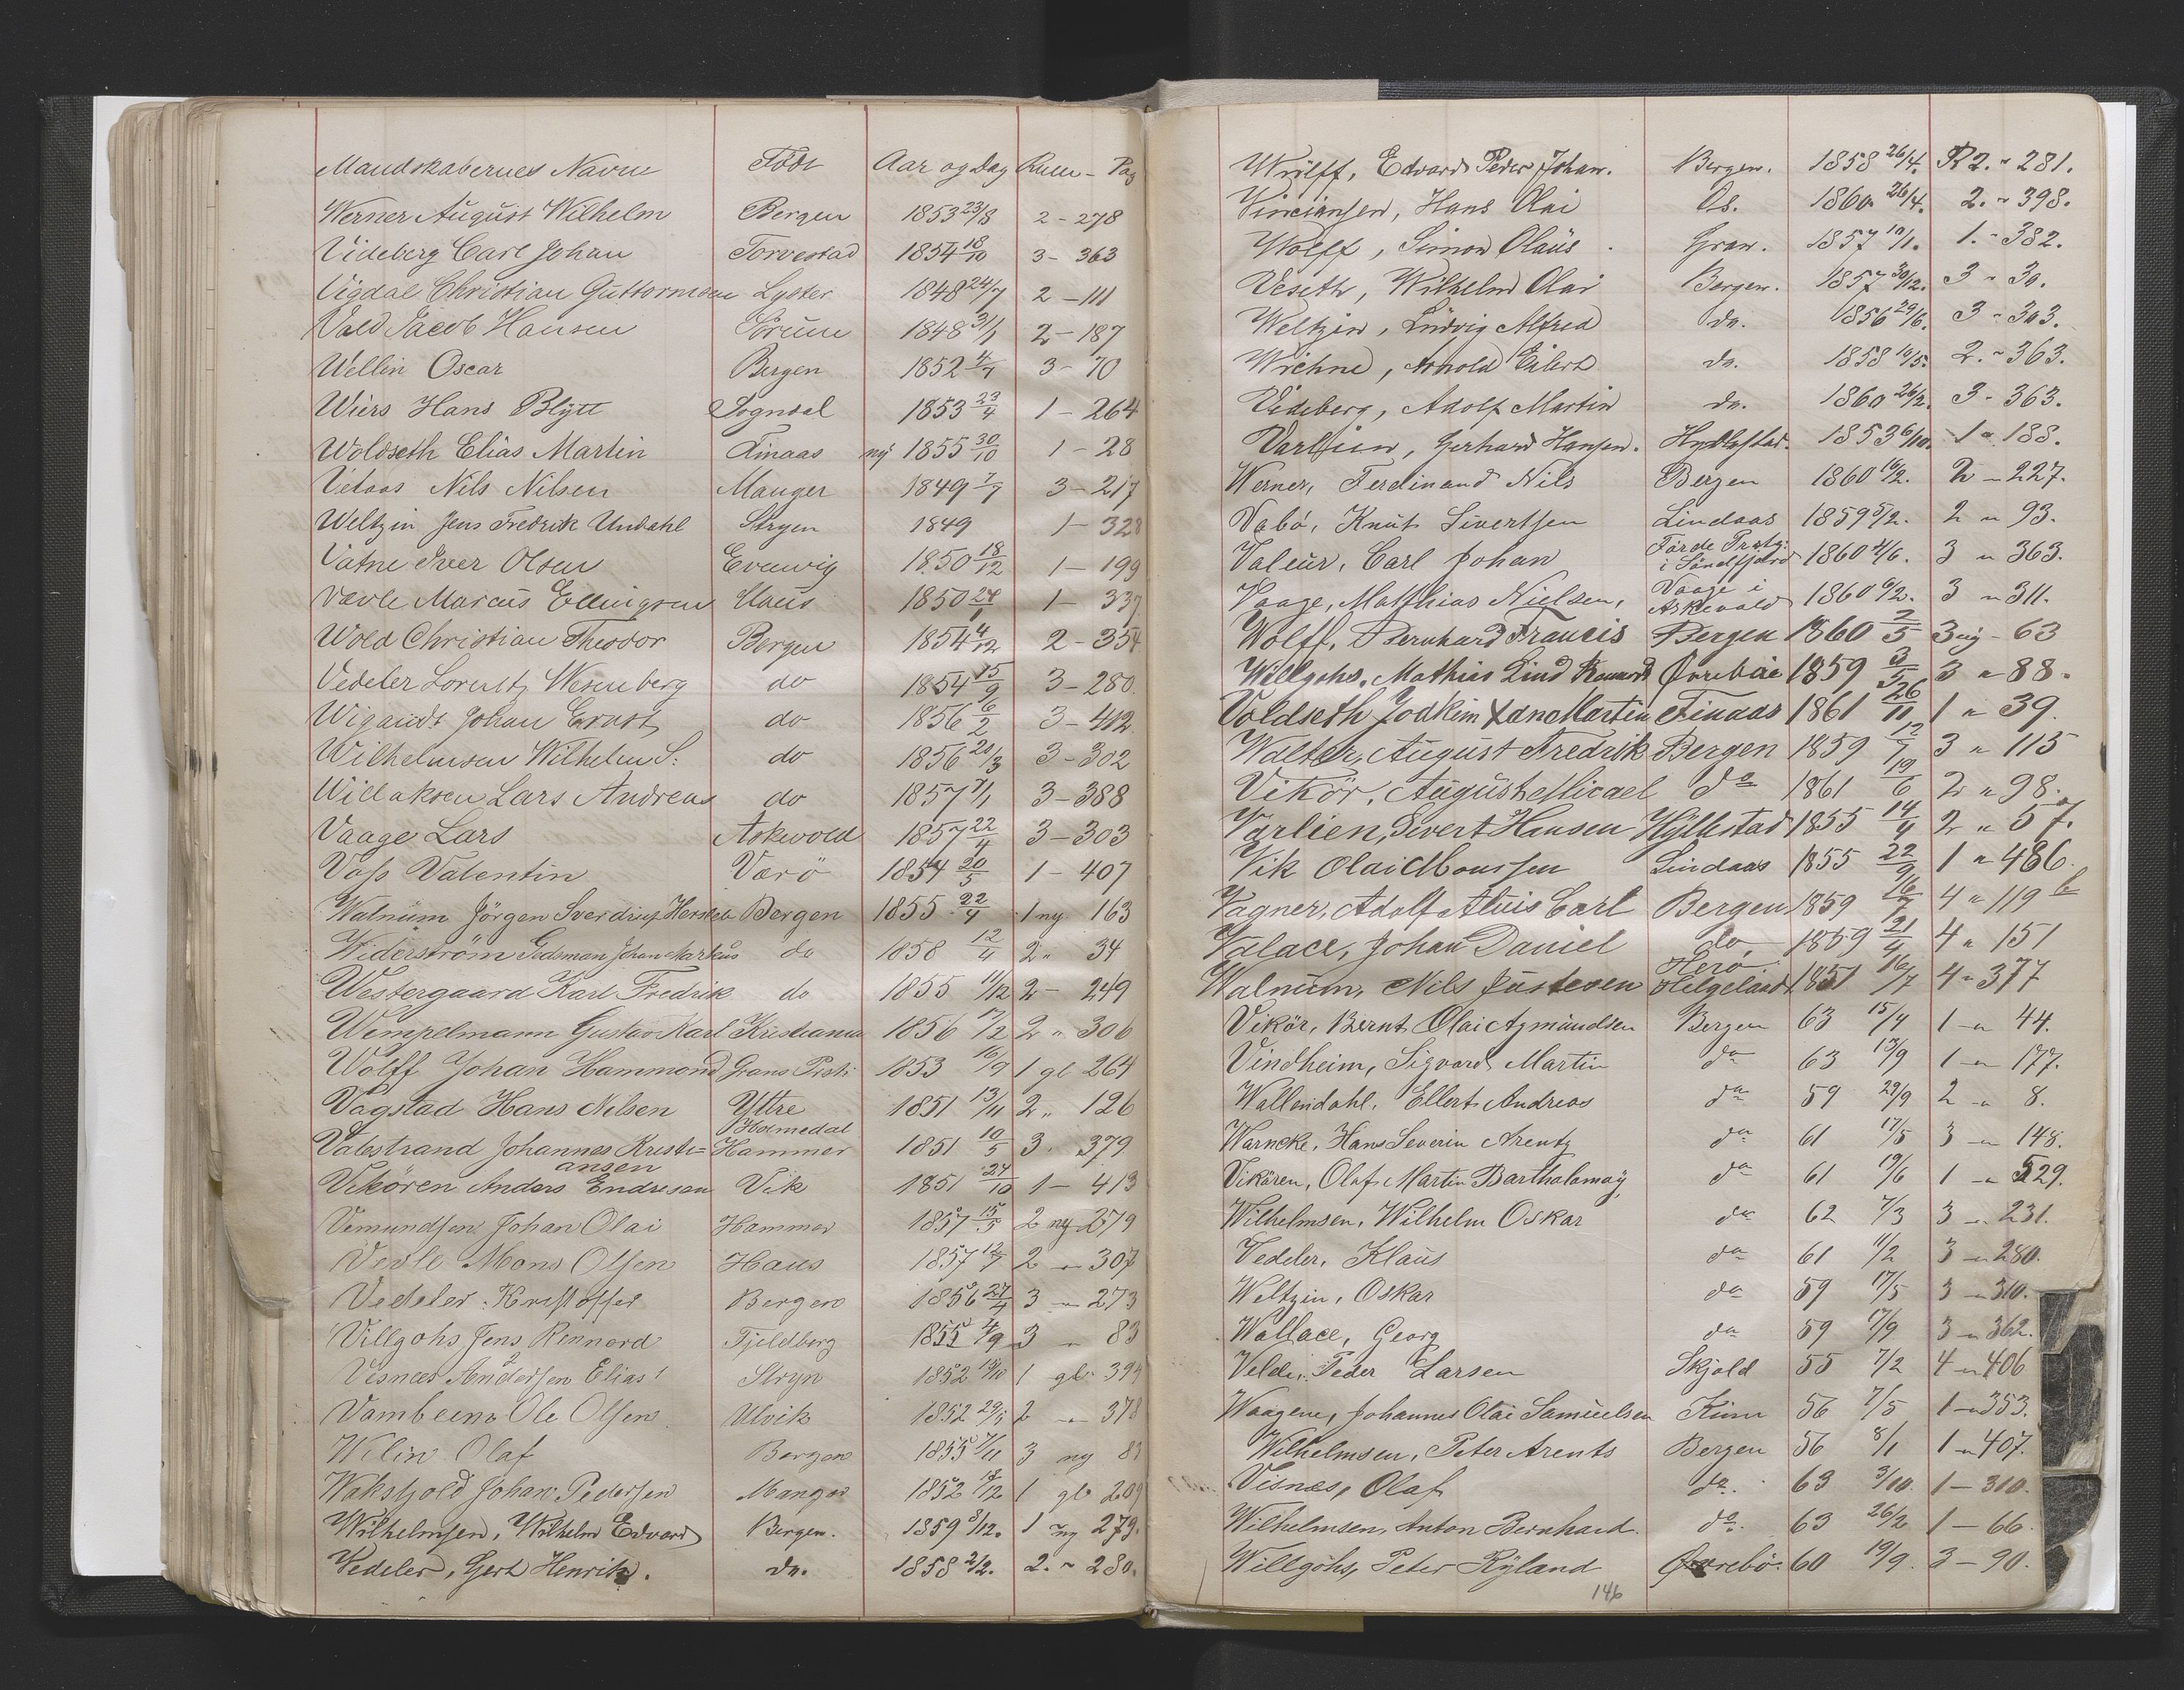 Mandskabernes Navne Födt Aar og Dag Rum - Pag
Werner August Wilhelm Bergen 1853 23/8 2 - 278
Videberg Carl Johan Torvestad 1854 18/10 3 - 363
Vigdal Christian Guttormsen Lyster 1848 24/7 2 - 111
Vold Jacob Hansen Sörum 1848 31/1 2 - 187
Wellin Oscar Bergen 1852 4/7 3 - 70
Wiers Hans Blytt Sogndal 1853 23/4 1 - 264
Woldseth Elias Martin Finaas ny 1855 30/10 1 - 28
Vetaas Nils Nilsen Manger 1849 7/7 3 - 217
Weltzin Jens Fredrik Undahl Stryen 1849 1 - 328
Vatne Iver Olsen Evenvig 1850 18/12 1 - 199
Vævle Marcus Ellingsen Haus 1850 1 - 337
Wold Christian Theodor Bergen 1854 4/12 2 - 354
Vedeler Lorentz Wesenberg do 1854 15/9 3 - 280
Wigandt Johan Ernst do 1856 6/2 3 - 412
Wilhelmsen Wilhelm S: do 1856 20/3 3 - 302
Willaksen Lars Andreas do 1857 7/1 3 - 388
Vaage Lars Askevold 1857 22/4 3 - 303
Voss Valentin Værö 1854 20/5 1 - 407
Walnum Jörgen Sverdrup Hersleb Bergen 1855 22/4 1 ny 163
Widerström Godsman Johan Markus do 1858 12/4 2 " 34
Westergaard Karl Fredrik do 1855 11/12 2 - 249
Wempelmann Gustav Karl Kristiania 1856 17/12 2 " 306
Wolff Johan Hammond Grans Prsti 1853 16/9 1 gl 264
Vagstad Hans Nilsen Yttre Holmedal 1851 13/11 2 " 126
Valestrand Johannes Kristi= Hammer 1851 10/5 3 . 379
ansen
Vikören Anders Endresen Vik 1851 24/10 1 - 413
Vemundsen Johan Olai Hammer 1857 15/5 2 ny 279
Vevle Mons Olsen Haus 1857 12/7 2 - 307
Vedeler Kristoffer Bergen 1856 27/4 3 - 273
Villgohs Jens Rennord Fjeldberg 1855 4/9 3 " 83
Visnæs Andersen Elias Stryn 1852 19/10 1 gl. 394
Vambeim Ole Olsen Ulvik 1852 29/5 2 - 378
Welin Olaf Bergen 1855 7/11 3 ny 83
Wakskjold Johan Pedersen Manger 1852 18/12 1 gl 209
Wilhelmsen, Wilhelm Edvard Bergen. 1859 8/12. 1 ny 279.
Vedeler, Gert Henrik. do. 1858 2/2. 2. " 280.
Wülff, Edvard Peder Johan. Bergen. 1858 26/4. R 2. " 281.
Vinciansen, Hans Olai Os. 1860 26/4. 2. " 398.
Wolff, Simon Olaüs. Gran. 1857 10/11. 1. " 382.
Veseth, Wilhelm Olai Bergen. 1857 30/12. 3 " 30.
Weltzin, Ludvig Alfred do. 1856 29/6. 3 " 303.
Wichne, Arnold Eilert do. 1858 10/5. 2. " 363.
Videberg, Adolf Martin do. 1860 26/2. 3 - 363.
Varlien, Gerhard Hansen. Hyllestad. 1853 6/10. 1 " 188.
Werner, Ferdinand Nils Bergen 1860 16/2. 2 - 227.
Vabö, Knut Sivertsen Lindaas 1859 5/2. 2 " 93.
Valeur, Carl Johan Förde Prstg: i Söndfjord 1860 4/6. 3 " 363.
Vaage, Matthias Nielsen, Vaage i Askevold 1860 6/2. 3 " 311.
Wolff, Bernhard Francis Bergen 1860 2/5 3 ny - 63
Willgohs, Mathias Lind Rennord Øvreböe 1859 3/5 3 " 88.
Voldseth Joakim Xan Martin Finaas 1861 26/11 1 " 39.
Walter, August Fredrik Bergen 1859 12/7 3 " 115
Vikör, August Micael do 1861 19/6 2 " 98.
Varlien, Sivert Hansen Hyllestad 1855 14/4 2 " 57.
Vik Olai Monssen Lindaas 1855 22/9 1 " 486.
Vagner, Adolf Aluis Carl Bergen 1859 4 " 119 b
Valace, Johan Daniel do 1859 21/4 4 " 151
Walnum, Nils Justesen Herö Helgeland 1851 16/7 4 " 377
Vikör, Bernt Olai Agmundsen Bergen 63 15/4 1 - 44.
Vindheim, Sigvard Martin do 63 13/9 1 - 177.
Wallendahl, Ellert Andreas do 59 29/9 2 - 8.
Warncke, Hans Severin Arentz do 61 17/5 3 - 148.
Vikören, Olaf Martin Bartholomay, do 61 19/6 1 - 529.
Wilhelmsen, Wilhelm Oskar do 62 7/3 3 - 231.
Vedeler, Klaus do 61 11/2 3 - 280.
Weltzin, Oskar do 59 17/5 3 - 310.
Wallace, Georg do 59 17/9 3 - 362.
Velde, Peder Larsen Skjold 55 7/2 4 - 406
Waagene, Johannes Olai Samuelsen Kinn 56 7/5 1 - 353.
Wilhelmsen, Peter Arents Bergen 56 8/1 1 - 407.
Visnæs, Olaf do. 63 3/10. 1 - 310.
Wilhelmsen, Anton Bernhard. do. 63 26/2 1 - 66.
Willgohs, Peter Ryland Øvrebö. 60 19/9. 3 - 90.
146